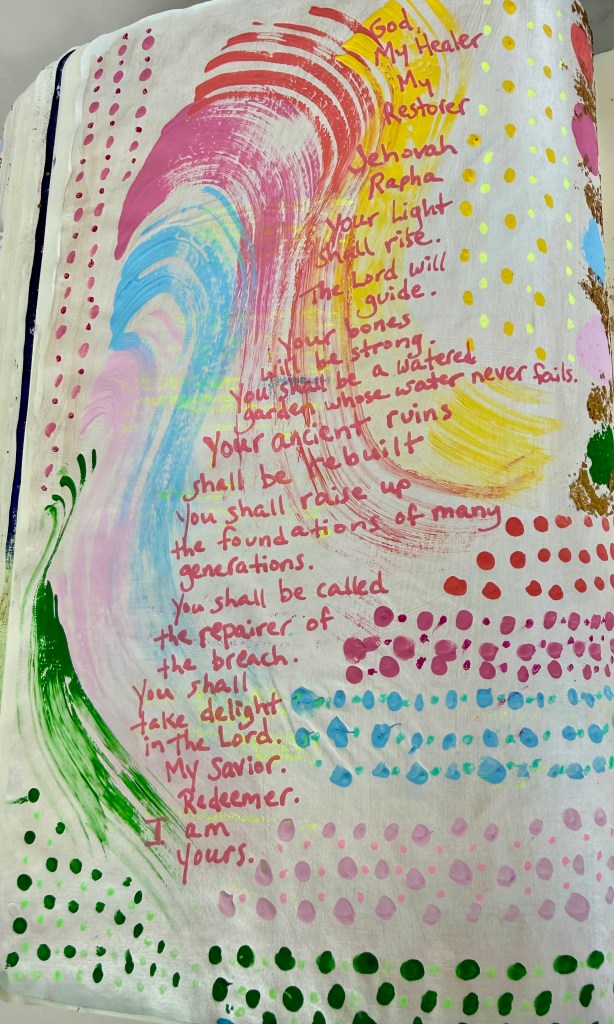 God,
My Healer
My
Restorer
Jehovah
Rapha
Your Light
shall rise.
The Lord will
guide.
Your bones
will be strong.
You shall be a watered
garden whose water never fails.
Your ancient ruins
shall be rebuilt
You shall raise up
the foundations of many
generations.
You shall be called
the repairer of
the breach.
You shall
take delight
in The Lord.
My Savior.
Redeemer.
I am
yours.